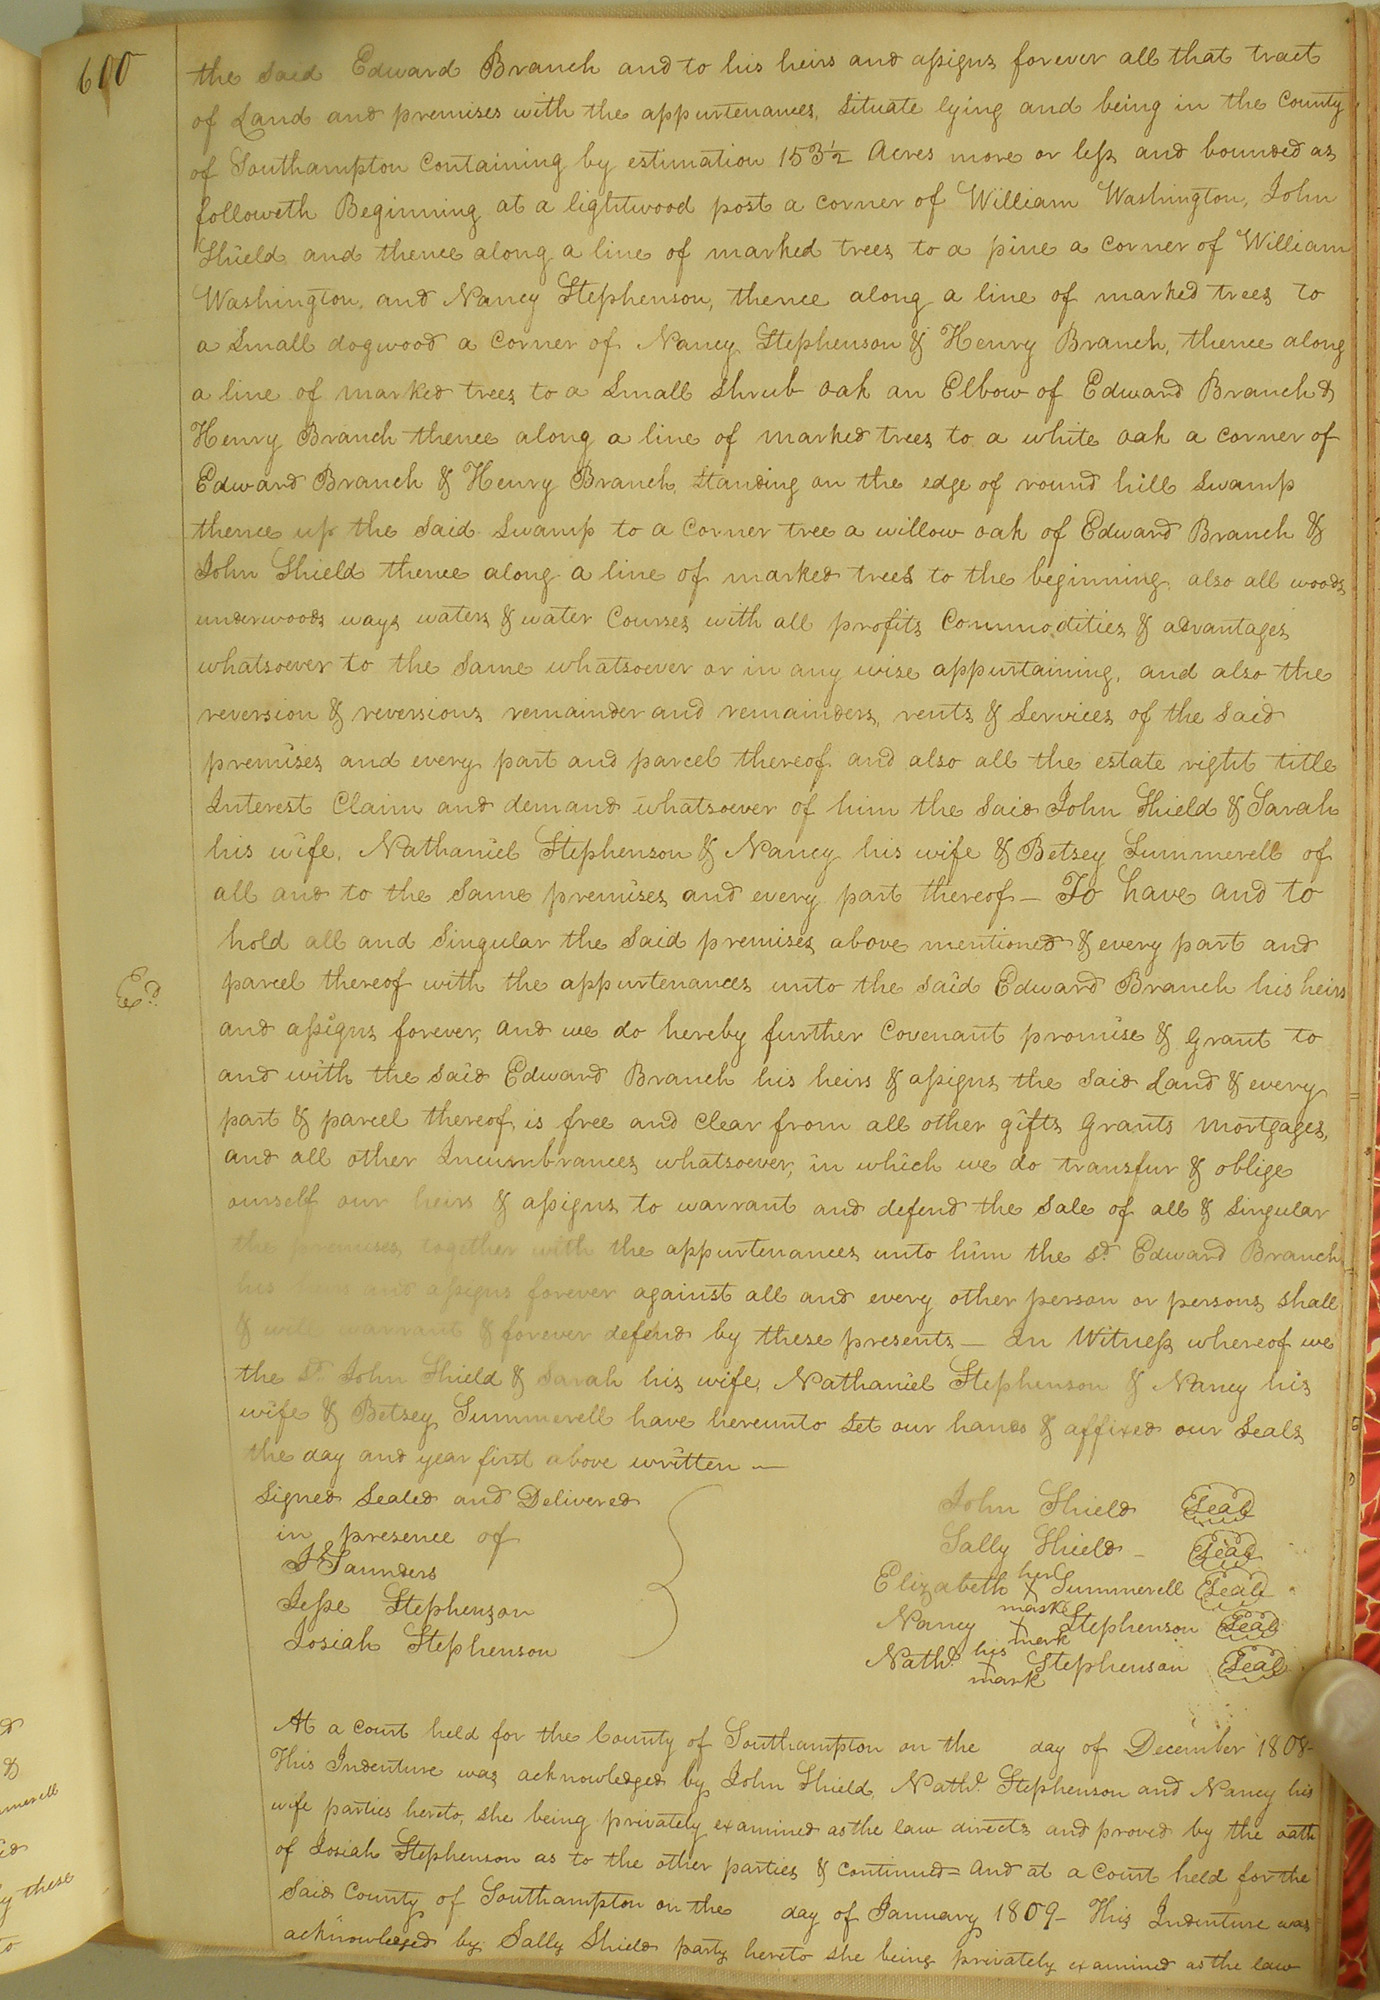 600
the said Edward Branch and to his heirs and assigns forever all that tract
of Land and premises with the appurtenances, situate lying and being in the County
of Southampton Containing by estimation 153½ Acres more or less and bounded as
followeth Beginning at a lightwood post a corner of William Washington, John
Shield and thence along a line of marked trees to a pine a corner of William
Washington, and Nancy Stephenson, thence along a line of marked trees to
a Small dogwood a Corner of Nancy Stephenson & Henry Branch, thence along
a line of marked trees to a Small Shrub Oak an Elbow of Edward Branch &
Henry Branch thence along a line of marked trees to a white Oak a Corner of
Edward Branch & Henry Branch, standing on the edge of round hill Swamp
thence up the said Swamp to a Corner tree a willow oak of Edward Branch &
John Shield thence along a line of marked trees to the beginning, also all woods
underwoods ways waters & water Courses with all profits Commodities & advantages
whatsoever to the Same whatsoever or in any wise appurtaining, and also the
reversion & reversions remainder and remainders, rents & Services of the said
premises and every part and parcel thereof and also all the estate right title
Interest Claim and demand whatsoever of him the said John Shield & Sarah
his wife, Nathaniel Stephenson & Nancy his wife & Betsey Summerell of
all and to the Same premises and every part thereof — To have and to
hold all and Singular the Said premises above mentioned & every part and
Exd.
parcel thereof with the appurtenances unto the said Edward Branch his heirs
and assigns forever, and we do hereby further Covenant promise & grant to
and with the said Edward Branch his heirs & assigns the said Land & every
part & parcel thereof is free and clear from all other gifts grants mortgages,
and all other Incumbrances whatsoever, in which we do transfur & oblige
ourself our heirs & assigns to warrant and defend the Sale of all & Singular
the premises together with the appurtenances unto him the sd. Edward Branch
his heirs and assigns forever against all and every other person or persons shall
& will warrant & forever defend by these presents — In Witness whereof we
the sd. John Shield & Sarah his wife, Nathaniel Stephenson & Nancy his
wife & Betsey Summerell have hereunto Set our hands & affixed our Seals
the day and year first above written —
Signed Sealed and Delivered
in presence of
Js Saunders
Jesse Stephenson
Josiah Stephenson
John Shield Seal
Sally Shield - Seal
Elizabeth her X mark Summerell Seal
Nancy her X mark Stephenson Seal
Nathl. his X mark Stephenson Seal
At a Court held for the County of Southampton on the day of December 1808-
This Indenture was acknowledged by John Shield, Nathl. Stephenson and Nancy his
wife parties hereto, she being privately examined as the law directs and proved by the oath
of Josiah Stephenson as to the other parties & Continued = And at a Court held for the
Said County of Southampton on the day of January 1809 - This Indenture was
acknowleged by Sally Shield party hereto she being privately examined as the law